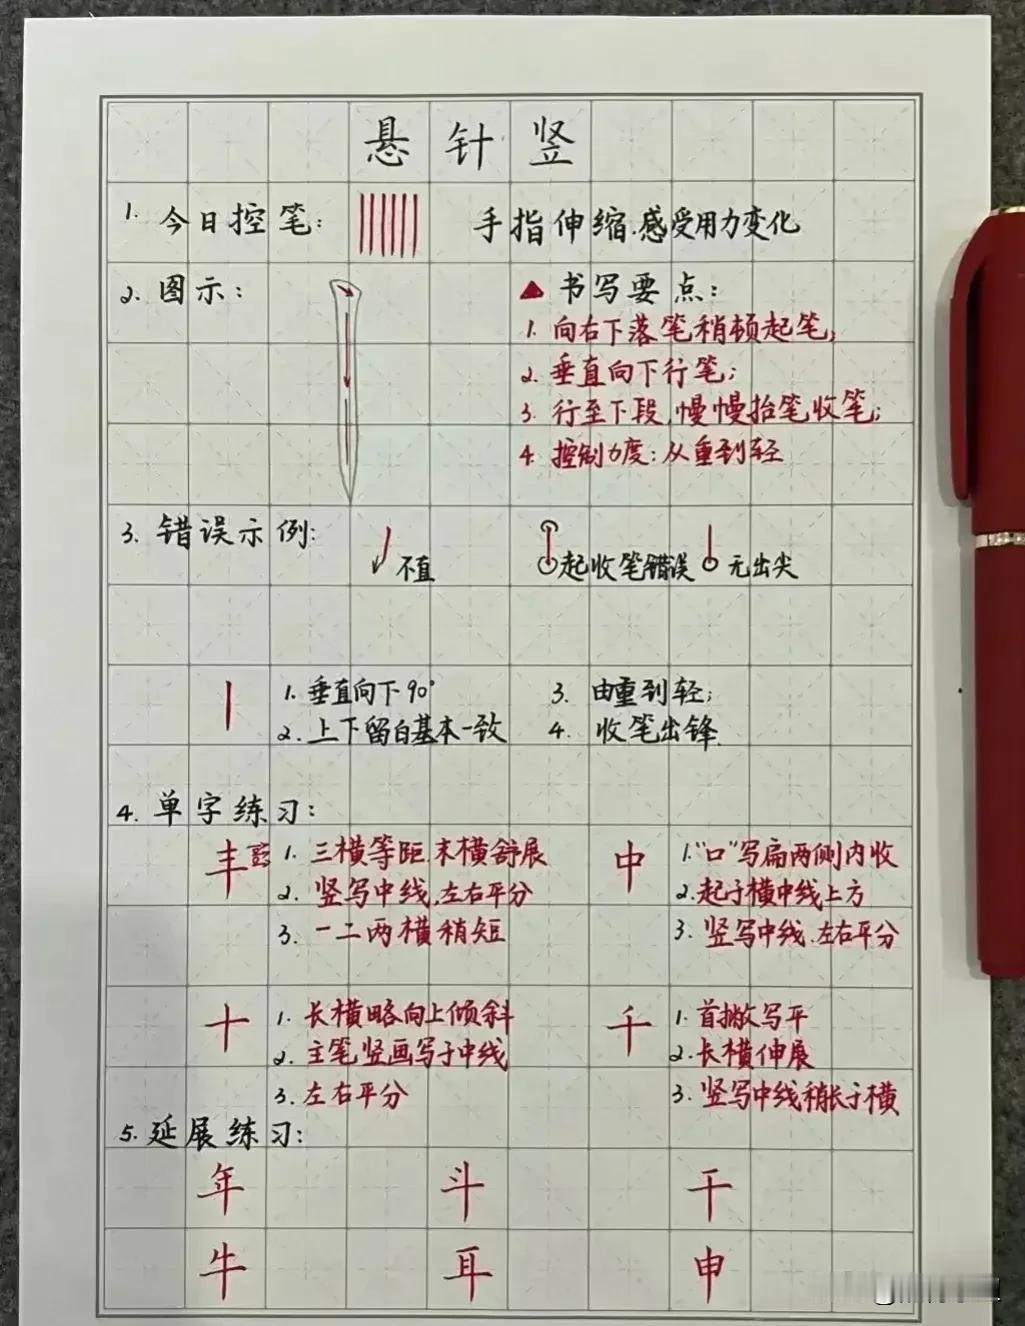 悬针竖
1. 今日控笔： 手指伸缩.感受用力变化
2. 图示：
▲ 书写要点：
1. 向右下落笔稍顿起笔；
2. 垂直向下行笔；
3. 行至下段,慢慢抬笔收笔；
4. 控制力度：从重到轻
3. 错误示例： 不直 起收笔错误 无出尖
1. 垂直向下90°
2. 上下留白基本一致
3. 由重到轻；
4. 收笔出锋.
4. 单字练习：
丰
1. 三横等距.末横舒展
2. 竖写中线.左右平分
3. 一二两横稍短
中
1. "口"写扁两侧内收
2. 起于横中线上方
3. 竖写中线.左右平分
十
1. 长横略向上倾斜
2. 主笔竖画写于中线
3. 左右平分
千
1. 首撇写平
2. 长横伸展
3. 竖写中线稍长于横
5. 延展练习：
年 斗 干
牛 耳 申